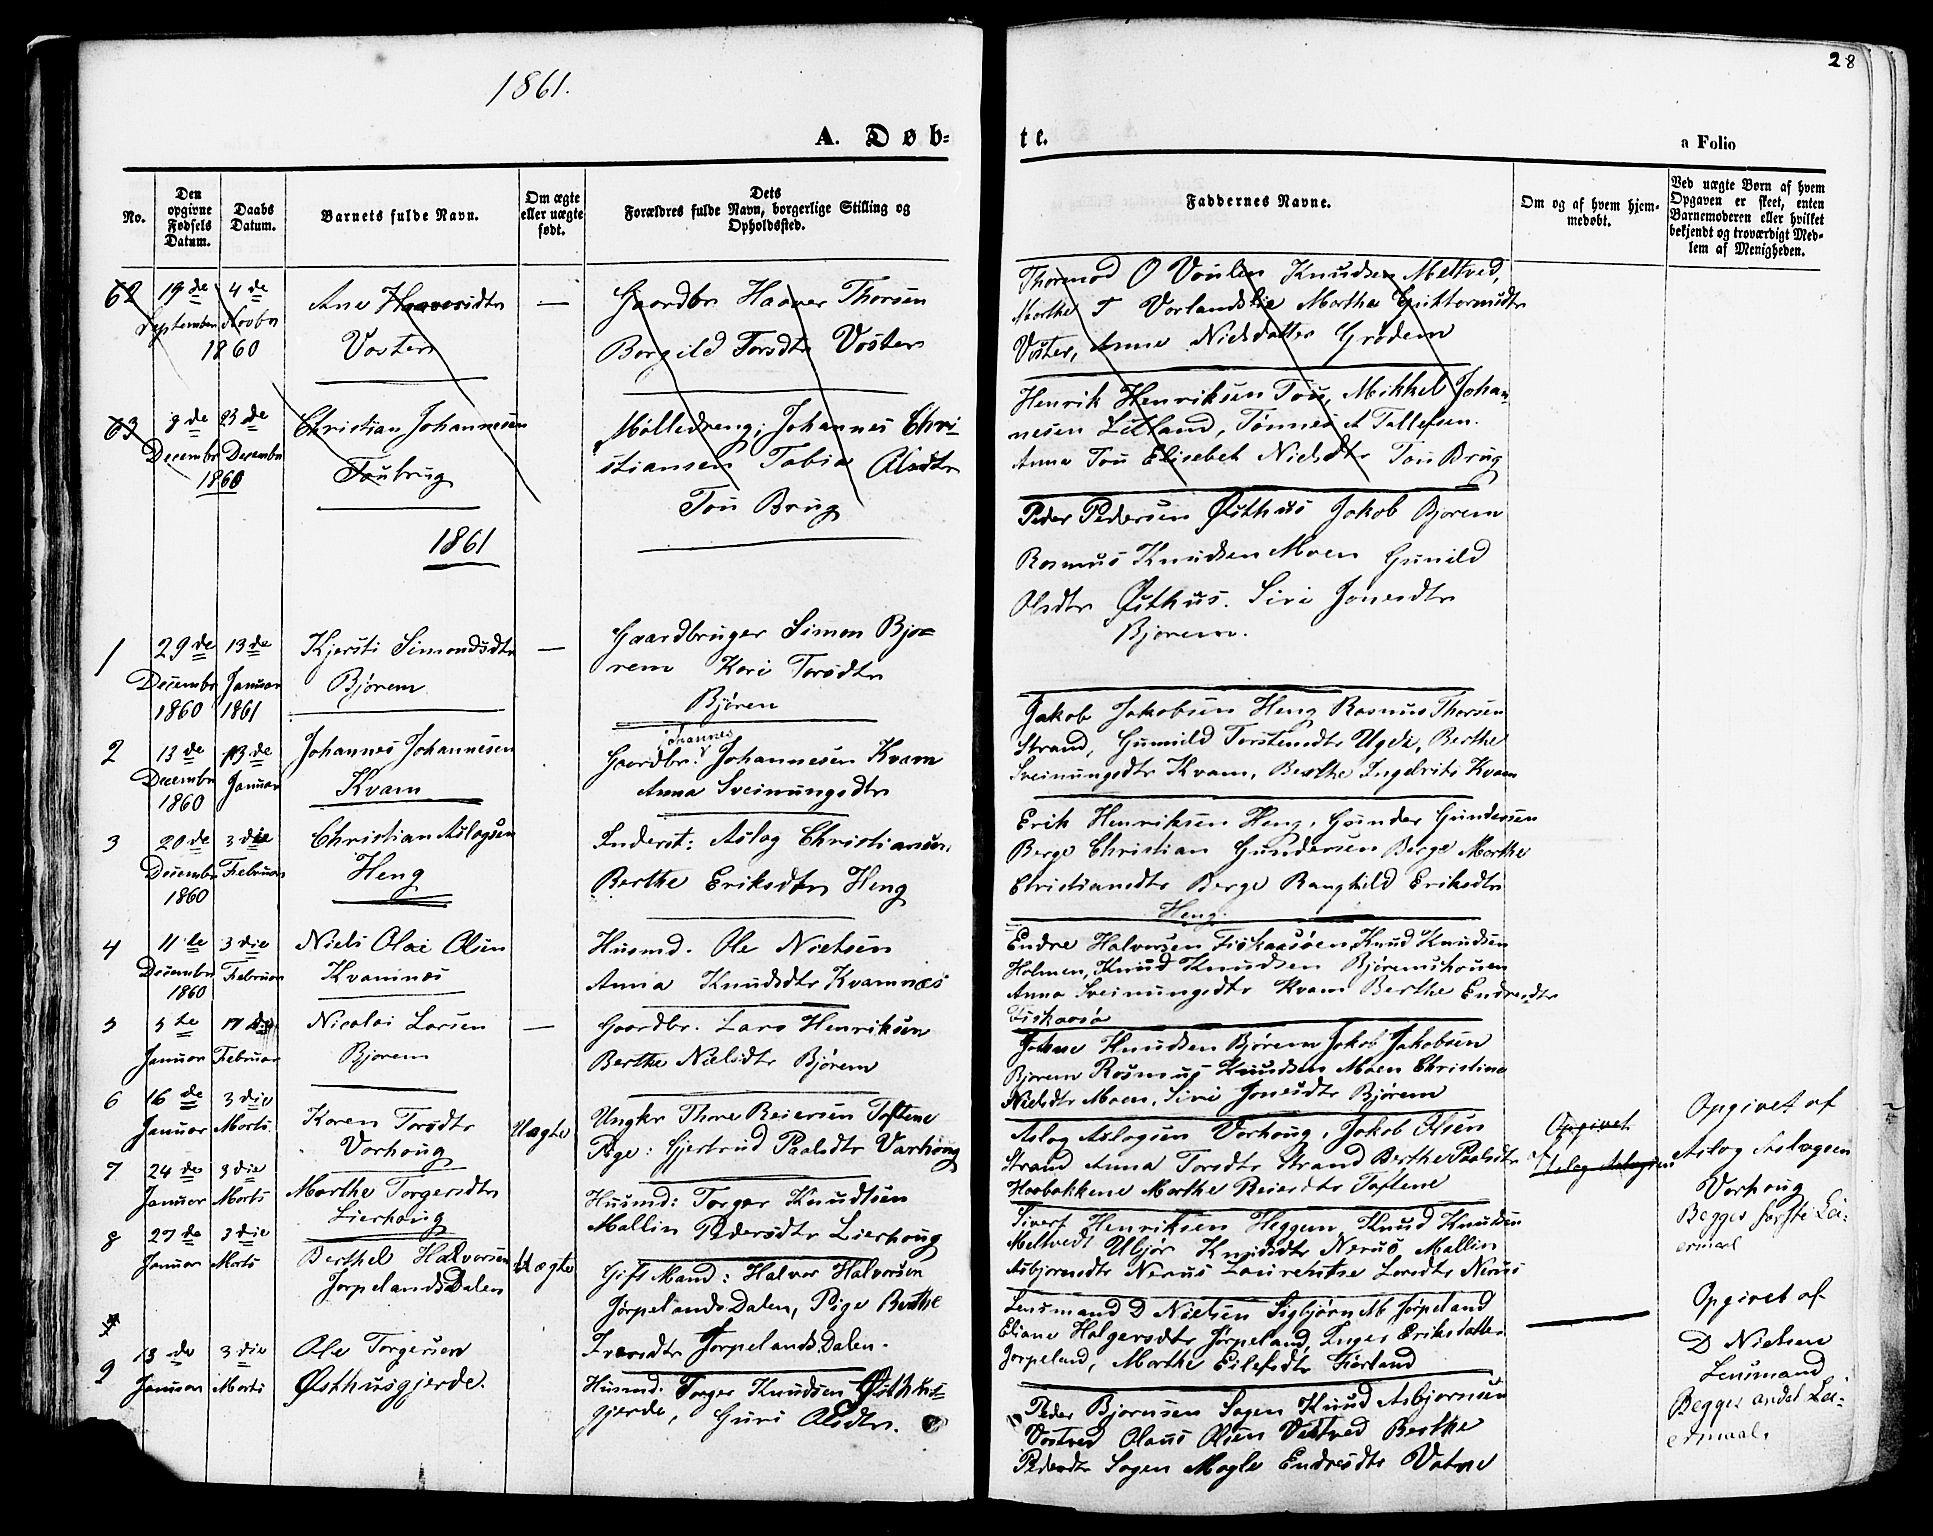 28
1861.
A. Døb-
te.
a Folio
No.
Den opgivne Fødsels Datum.
Daabs Datum.
Barnets fulde Navn.
Om ægte eller uægte født.
Dets Forældres fulde Navn, borgerlige Stilling og Opholdssted.
Faddernes Navne.
Om og af hvem hjemmedøbt.
Ved uægte Børn af hvem Opgaven er skeet, enten Barnemoderen eller hvilket bekjendt og troværdigt Medlem af Menigheden.
62
19de September
4de Novbr
1860
Ane Haaversdtr
Voster
—
Gaardbr Haaver Thorsen
Borgild Torsdtr Voster
Thormod O Voulen Knudsen Meltved,
Marthe T Vorlandslie Marthe Guttormsdtr
Voster, Anne Nielsdatter Grødem
63
8de Decembr
23de Decembr
1860
Christian Johannesen
Toubrug
Mølledreng; Johannes Chri-
stiansen Tobia Olsdtr
Tou Brug
Henrik Henriksen Tou, Mikkel Johan-
nesen Litland, Tønnes A Tallefsen.
Anna Tou Elisebet Nielsdtr Tou Brug
1861
1
29de Decembr 1860
13de Januar 1861
Kjersti Simondsdtr
Bjørem
—
Gaardbruger Simon Bjø-
rem Kari Torsdtr
Bjøren
Peder Pedersen Østhus Jakob Bjorem
Rasmus Knudsen Moen Gunild
Olsdtr Østhus. Siri Jonesdtr
Bjørem.
2
13de Decembr 1860
13de Januar
Johannes Johannesen
Kvam
Johannes
Gaardbr. Johannesen Kvam
Anna Sveinungsdtr
Jakob Jakobsen Heng Rasmus Thorsen
Strand, Gunuld Torstensdtr Ugde, Berthe
Sveinungsdtr Kvam, Berthe Ingebrits Kvam
3
20de Decembr 1860
3die Februar
Christian Aslagsen
Heng
Inderst: Aslag Christiansen,
Berthe Eriksdtr Heng
Erik Henriksen Heng, Gunder Gundersen
Berge Christian Gundersen Berge Marthe
Christiansdtr Berge Ranghild Eriksdtr
Heng.
4
11te Decembr 1860
3die Februar
Niels Olai Olsen
Kvamnæs
Husmd. Ole Nielsen
Anna Knudsdtr Kvamnæs
Endre Halvorsen Fiskaasøen Knud Knudsen
Holmen, Knud Knudsen Bjøremshouen
Anna Sveinungsdtr Kvam Berthe Endresdtr
Fiskaasø
5
5te Januar
17die Februar
Nicolai Larsen
Bjorem
—
Gaardbr. Lars Henriksen
Berthe Nielsdtr Bjørem
Johne Knudsen Bjørem Jakob Jakobsen
Bjørem Rasmus Knudsen Moen Christine
Nielsdtr Moen, Siri Jonesdtr Bjørem
6
16de Januar
3die Marts
Karen Torsdtr
Vorhoug
Uægte
Ungkr Thore Reiersen Toftene
Pige: Gjertrud Paalsdtr Varhoug
Aslag Aslagsen Vorhoug, Jakob Olsen
Strand Anna Torsdtr Strand Berthe Paalsdtr
Hoabakkene Marthe Reiersdtr Toftene
Opgivet
af
Aslag Aslagsen
Opgivet af
Aslag Aslagsen
Vorhoug
Begges første Lei-
ermaal
7
24de Januar
3die Marts
Marthe Torgersdtr
Lierhoug
Husmd: Torger Knudtsen
Mallin Pedersdtr Lierhoug
Sivert Henriksen Heggem, Knud Knudsen
Meltvedt Ubjør Knudsdtr Nerus, Mallin
Asbjørnsdtr Nerus Laurentse Larsdtr Nerus
8
27de Januar
3die Marts
Berthel Halvorsen
JørpelandsDalen
Uægte
Gift Mand: Halvor Halvorsen
JørpelandsDalen, Pige Berthe
Ivarsdtr JørpelandsDalen.
Lensmand D Nielsen Sigbjørn M Jørpeland
Eliane Holgersdtr Jørpeland, Inger Eriksdatter
Jorpeland, Marthe Eilefsdtr Fjerland
Opgivet af
D Nielsen
Lensmand
Begges andet Lei-
ermaal.
9
13de Januar
3die Marts
Ole Torgersen
Østhusgjerde.
Husmd. Torger Knudsen Østhus-
gjerde, Guri Olsdtr.
Peder Bjørnsen Sagen Knud Asbjornsen
Vostved Olaus Olsen Vostved Berthe
Pedersdtr Sagen Magle Endresdtr Vatne